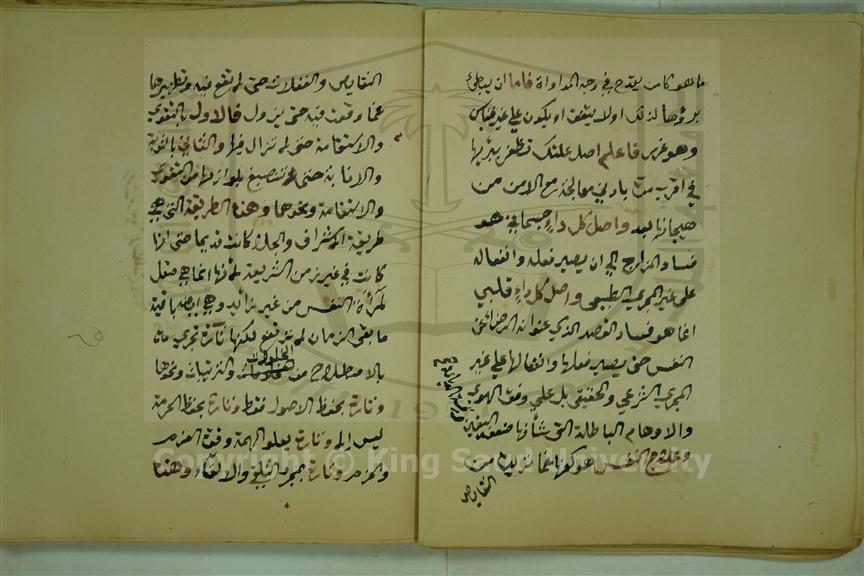 ما هو كامن يقدح في وجه المداواة فاما ان يبطئ
برؤها لذلك اولا يتفق او يكون على غير قياس
وهو غرير فاعلم اصل علتك تظفر ببرئها
في اقرب مدة بادنى معالجة مع الامن من
هيجانها بعد واصل كل داء جسماني هو
فساد المزاج الى ان يصير فعله وانفعاله
على غير المجرى الطبيعي واصل كل داء قلبي
انما هو فساد القصد الذي عنوانه الرضا عن
النفس حتى يصير فعلها وانفعالها على غير
المجرى الشرعي والحقيقي بل على وفق الهوى
والاوهام الباطلة التي شأنها ضعف اليقين
وعلاج النفس هو كفها عما تريد من
النقايص
النقايص والغفلات حتى لم تقع فيه وتطهيرها
عما وقعت فيه حتى يزول فالاول بالتقوى
والاستقامة حتى لم تزال فيها والثاني بالتوبة
والانابة حتى تنصبغ بلوازمها من التقوى
والاستقامة ونحوها وهذه الطريقة التي هي
طريقة الاشراف والجلاء كانت قديما حتى اذا
كانت في غير زمن الشريعة لانها انما هي صقل
لمرآة النفس من غير زائد وهي ايضا باقية
ما بقي الزمان لم ترتفع لكنها تارة تجري
بالاصطلاح من الخلوات والترتيبات ونحوها
وتارة بحفظ الاصول فقط وتارة بحفظ الحرمة
ليس الا وتارة بعلو الهمة وقوة العزم
والحزم وتارة بمجرد التلقي والالقاء وهذا